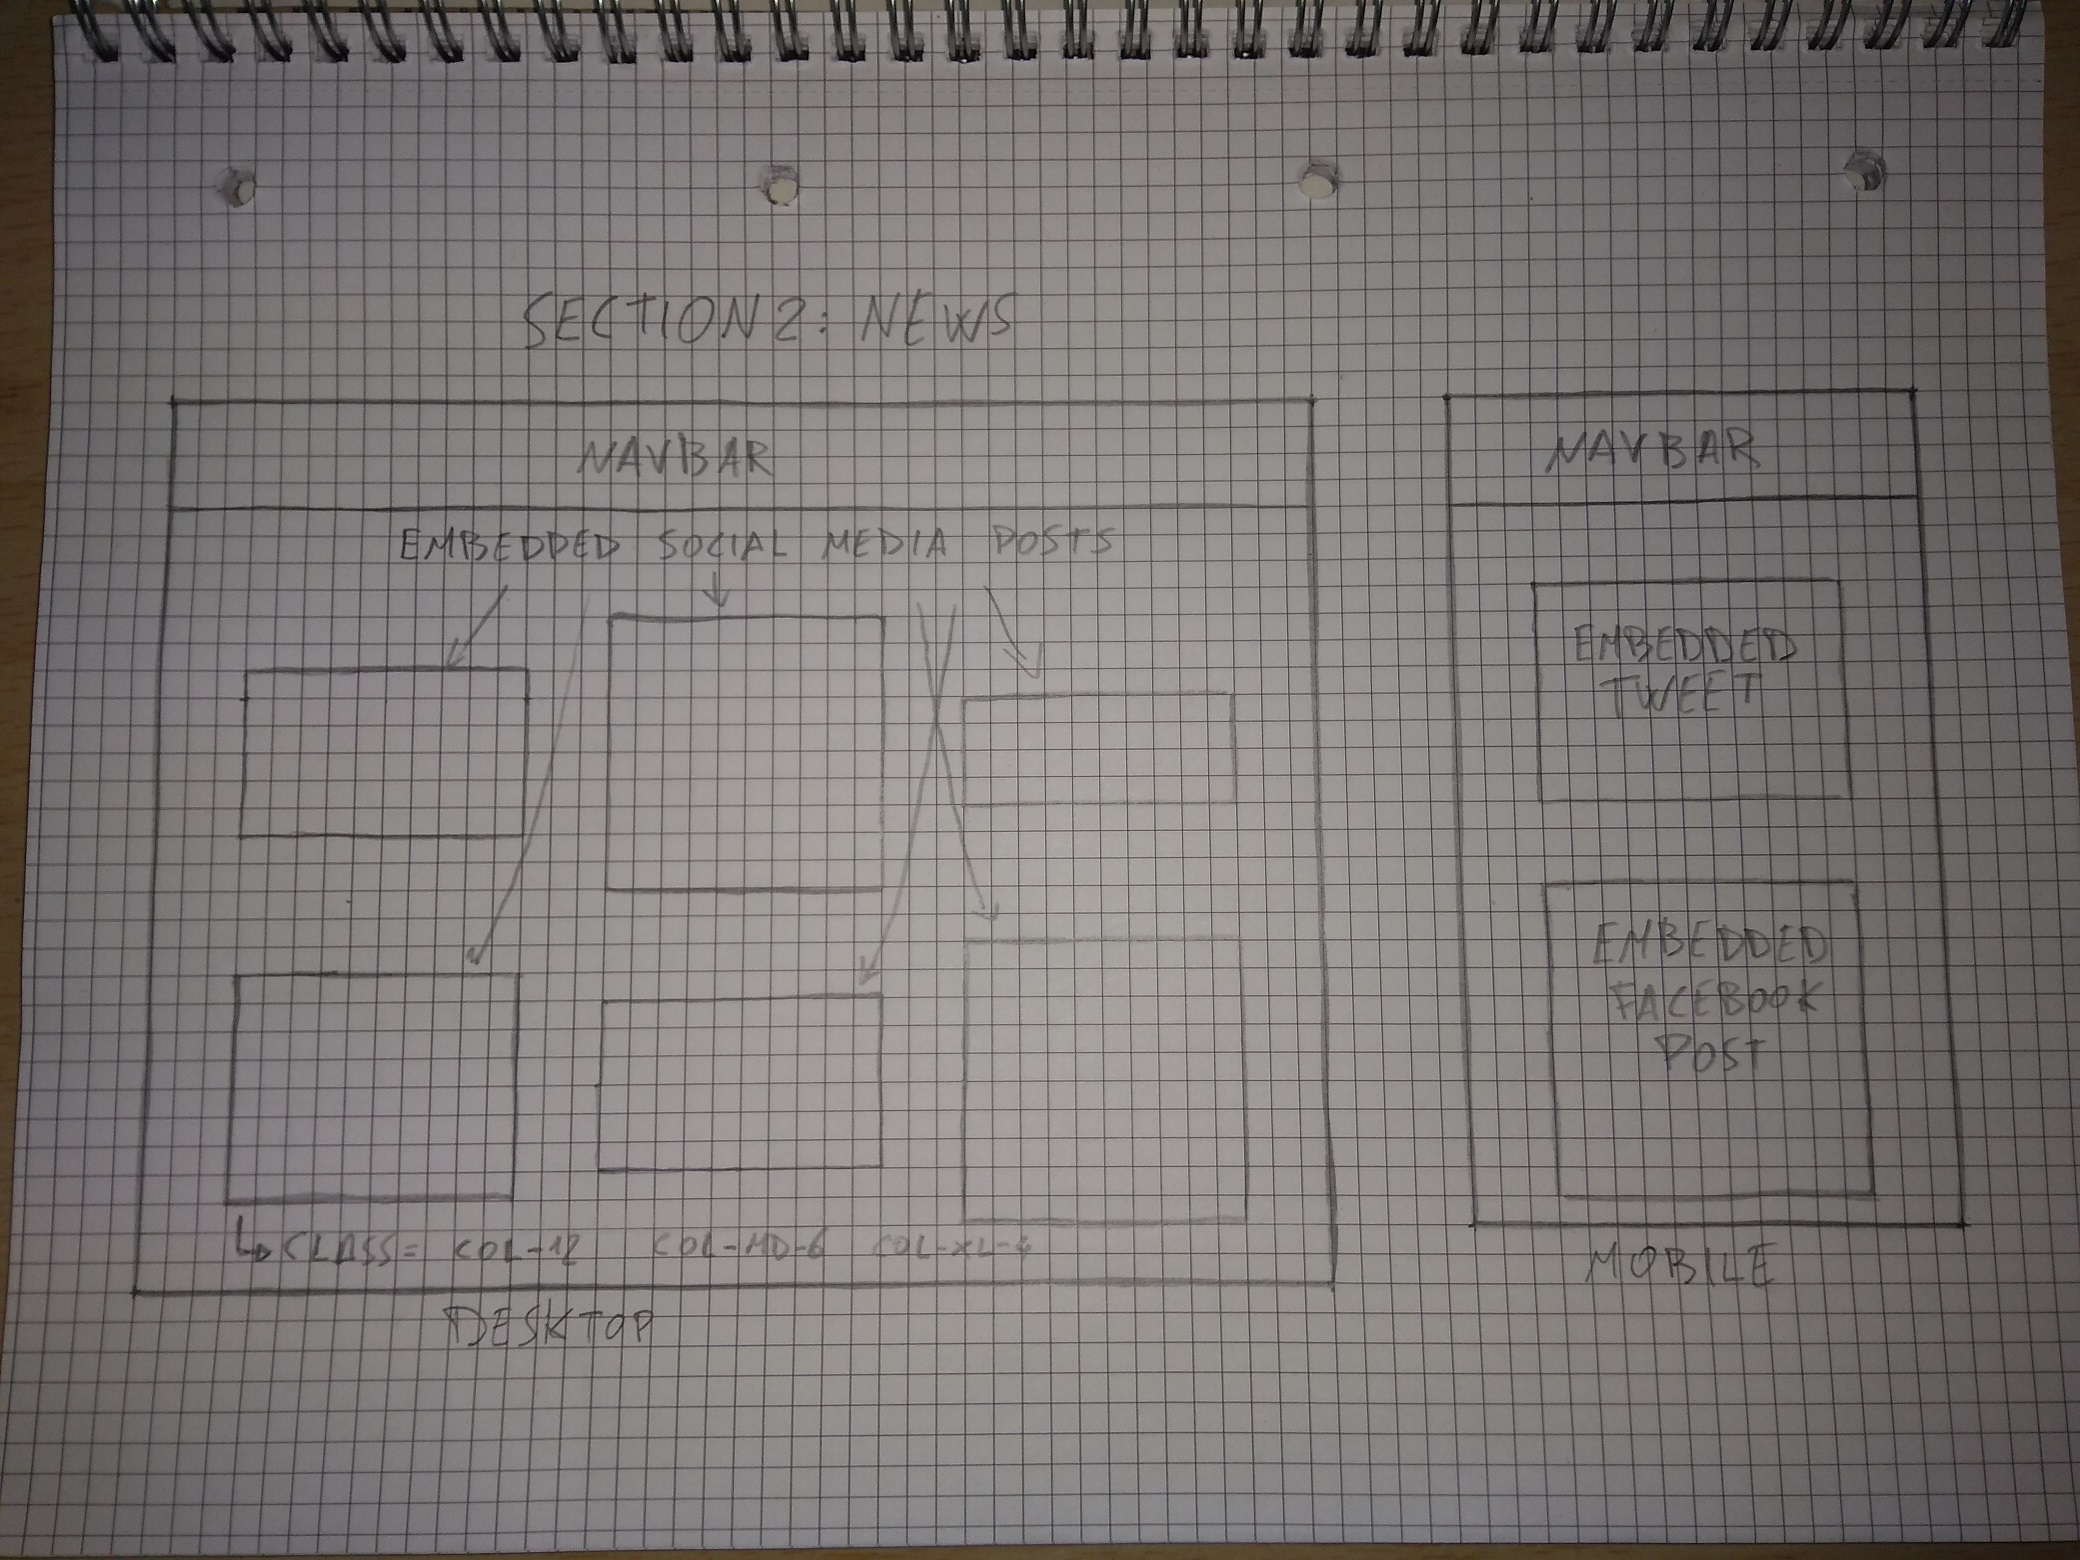 SECTION 2: NEWS
NAVBAR
EMBEDDED SOCIAL MEDIA POSTS
CLASS= COL-12 COL-MD-6 COL-XL-4
DESKTOP
NAVBAR
EMBEDDED
TWEET
EMBEDDED
FACEBOOK
POST
MOBILE